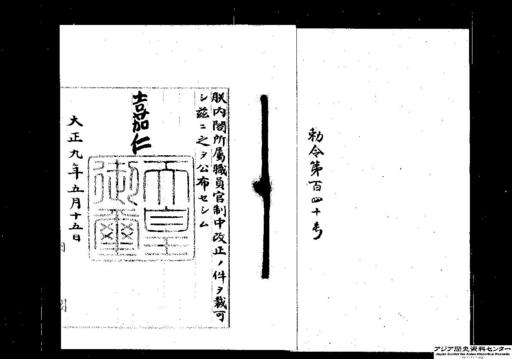 勅令第百四十号
朕内閣所属職員官制中改正ノ件ヲ裁可
シ茲ニ之ヲ公布セシム
嘉仁
天皇
御璽
大正九年五月十五日
アジア歴史資料センター
Japan Center for Asian Historical Records